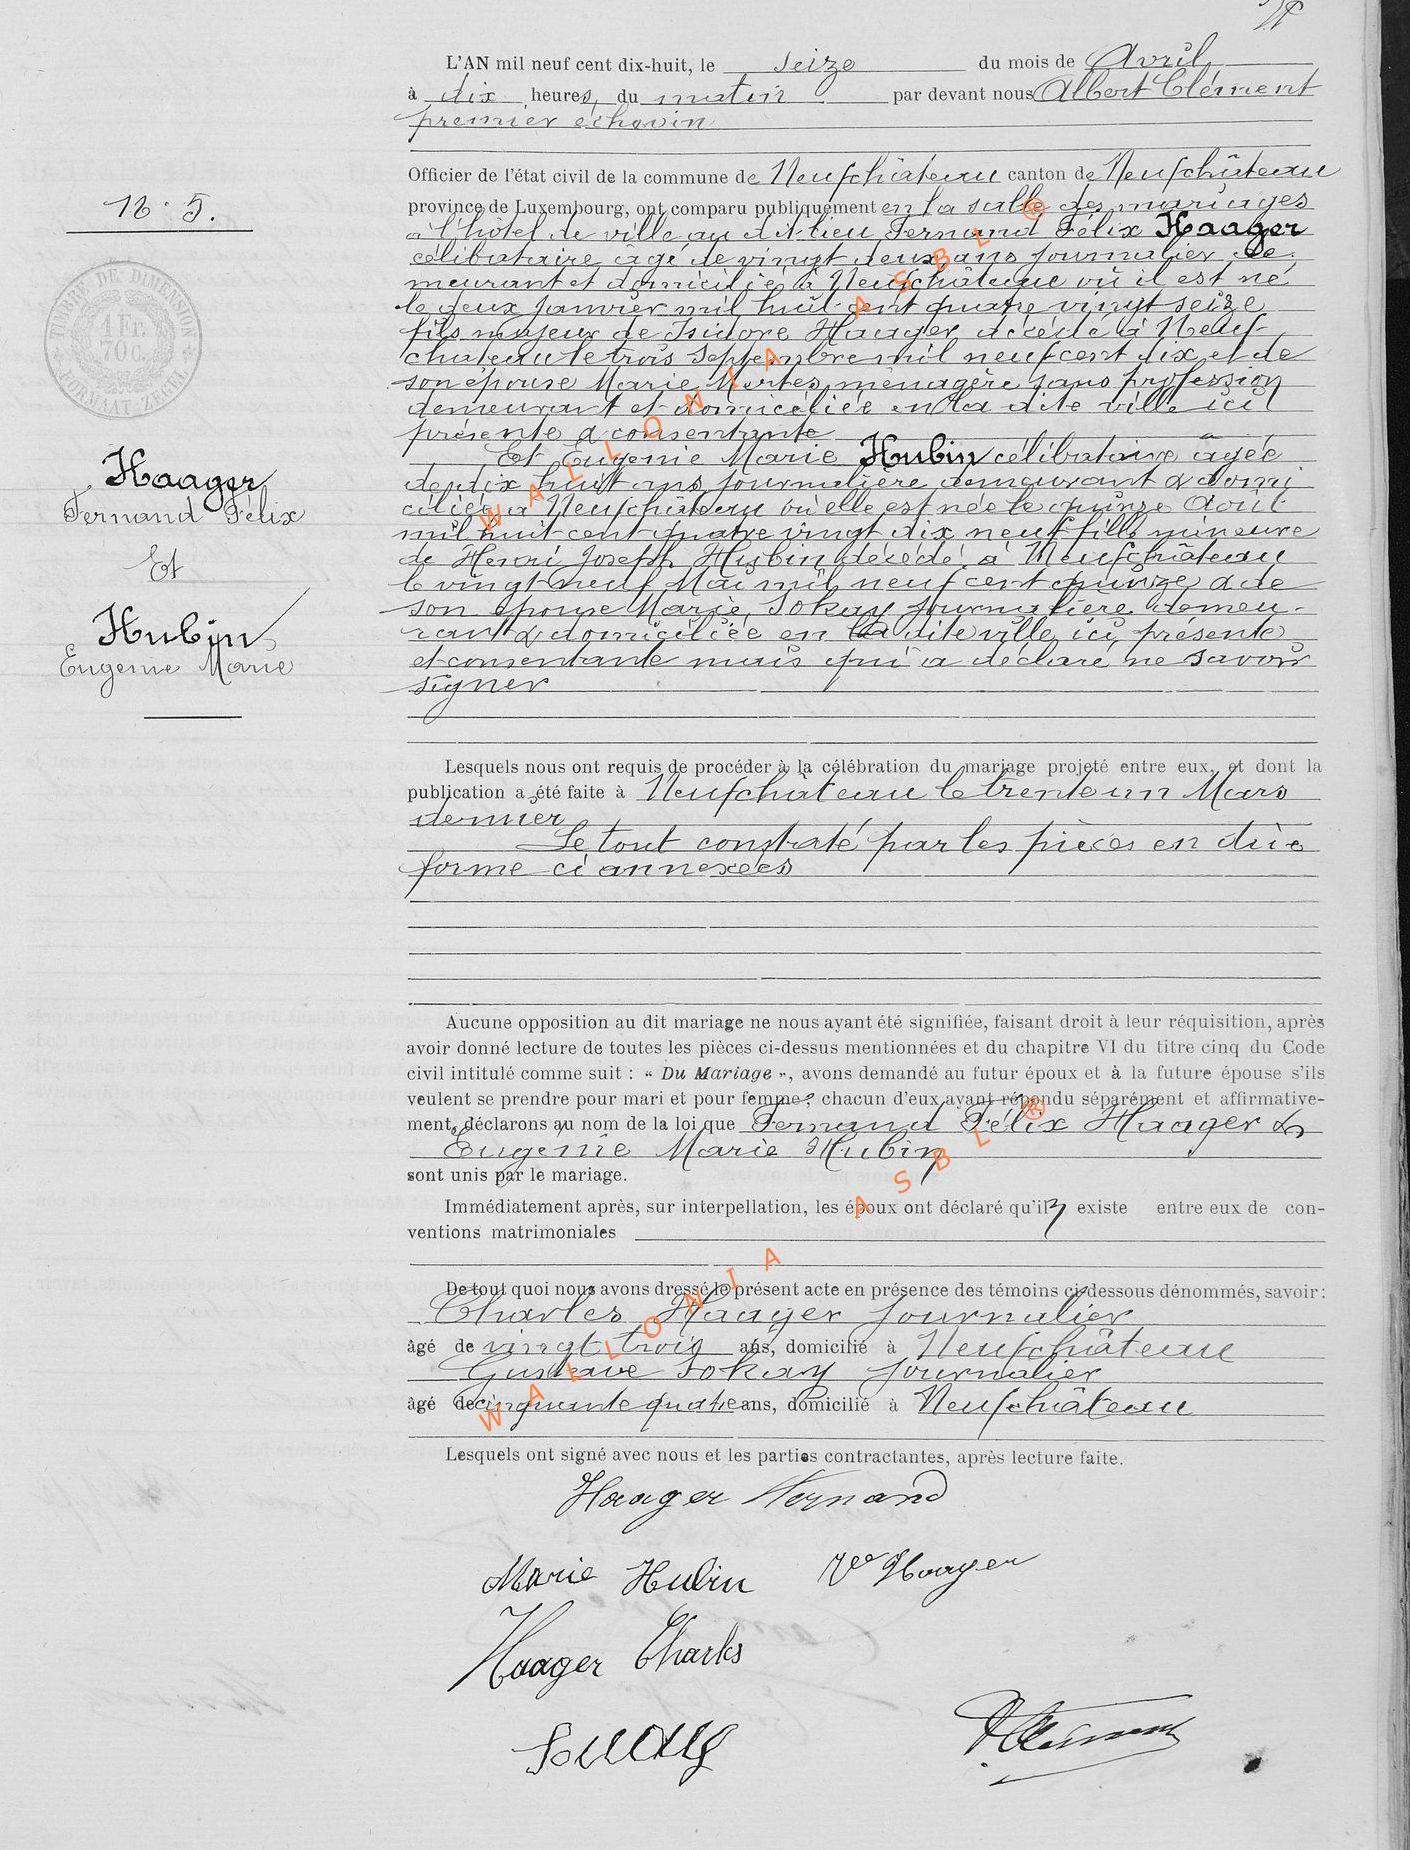 L'AN mil neuf cent dix-huit, le seize du mois de Avril
à dix heures, du matin par devant nous Albert Clément
premier échevin
Officier de l'état civil de la commune de Neufchâteau canton de Neufchâteau
province de Luxembourg, ont comparu publiquement en la salle des mariages
à l'hôtel de ville au dit lieu Fernand Félix Haager
célibataire âgé de vingt deux ans journalier de-
meurant et domicilié à Neufchâteau où il est né
le deux janvier mil huit cent quatre vingt seize
fils majeur de Isidore Haager décédé à Neuf-
chateau le trois septembre mil neuf cent dix et de
son épouse Marie Mertes, ménagère sans profession
demeurant et domiciliée en la dite ville ici
présente & consentante
Et Eugénie Marie Hubin célibataire âgée
de dix huit ans journalière demeurant & domi
ciliée à Neufchâteau où elle est née le quinze Août
mil huit cent quatre vingt dix neuf fille mineure
de Henri Joseph Hubin décédé à Neufchâteau
le vingt neuf Mai mil neuf cent quinze & de
son épouse Marie Sokay journalière demeu-
rant & domiciliée en la dite ville ici présente
et consentante mais qui a déclaré ne savoir
signer
No 5.
TIMBRE DE DIMENSION
1 Fr.
70 C.
FORMAAT-ZEGEL
Haager
Fernand Félix
Et
Hubin
Eugenie Marie
Lesquels nous ont requis de procéder à la célébration du mariage projeté entre eux, et dont la
publication a été faite à Neufchâteau le trente un Mars
dernier
Le tout constaté par les pièces en due
forme ci annexées
Aucune opposition au dit mariage ne nous ayant été signifiée, faisant droit à leur réquisition, après
avoir donné lecture de toutes les pièces ci-dessus mentionnées et du chapitre VI du titre cinq du Code
civil intitulé comme suit : « Du Mariage », avons demandé au futur époux et à la future épouse s'ils
veulent se prendre pour mari et pour femme ; chacun d'eux ayant répondu séparément et affirmative-
ment, déclarons au nom de la loi que Fernand Félix Haager &
Eugénie Marie Hubin
sont unis par le mariage.
Immédiatement après, sur interpellation, les époux ont déclaré qu'il existe entre eux de con-
ventions matrimoniales
De tout quoi nous avons dressé le présent acte en présence des témoins ci-dessous dénommés, savoir :
Charles Haager journalier
âgé de vingt trois ans, domicilié à Neufchâteau
Gustave Sokay journalier
âgé de cinquante quatre ans, domicilié à Neufchâteau
Lesquels ont signé avec nous et les parties contractantes, après lecture faite.
Haager Fernand
Marie Hubin Ve Haager
Haager Charles
WALLONIA ASBL ®
WALLONIA ASBL ®